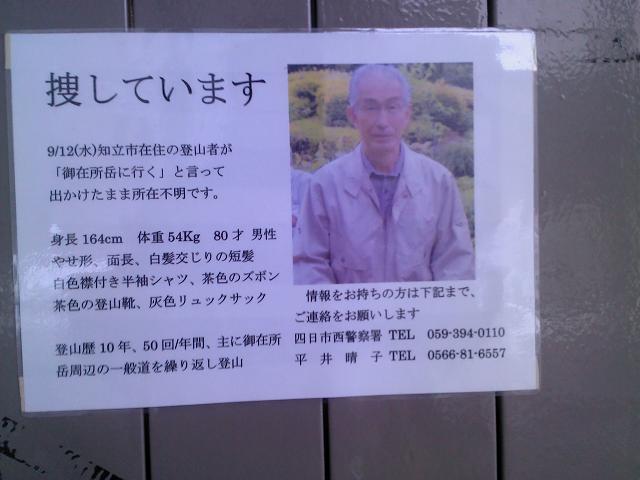 捜しています
9/12(水)知立市在住の登山者が
「御在所岳に行く」と言って
出かけたまま所在不明です。
身長164cm 体重54Kg 80才 男性
やせ形、面長、白髪交じりの短髪
白色襟付き半袖シャツ、茶色のズボン
茶色の登山靴、灰色リュックサック
登山歴10年、50回/年間、主に御在所
岳周辺の一般道を繰り返し登山
情報をお持ちの方は下記まで、
ご連絡をお願いします
四日市西警察署 TEL 059-394-0110
平井晴子 TEL 0566-81-6557